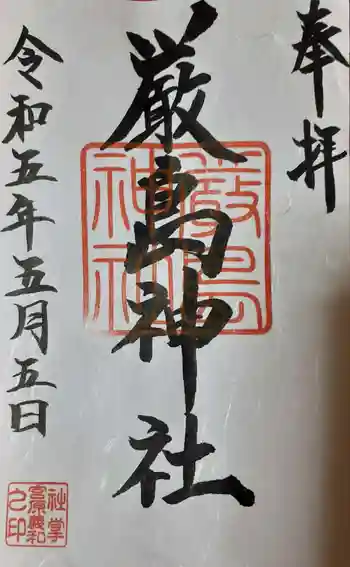 奉拝
厳島神社
嚴島
神社
令和五年五月五日
社掌
之印